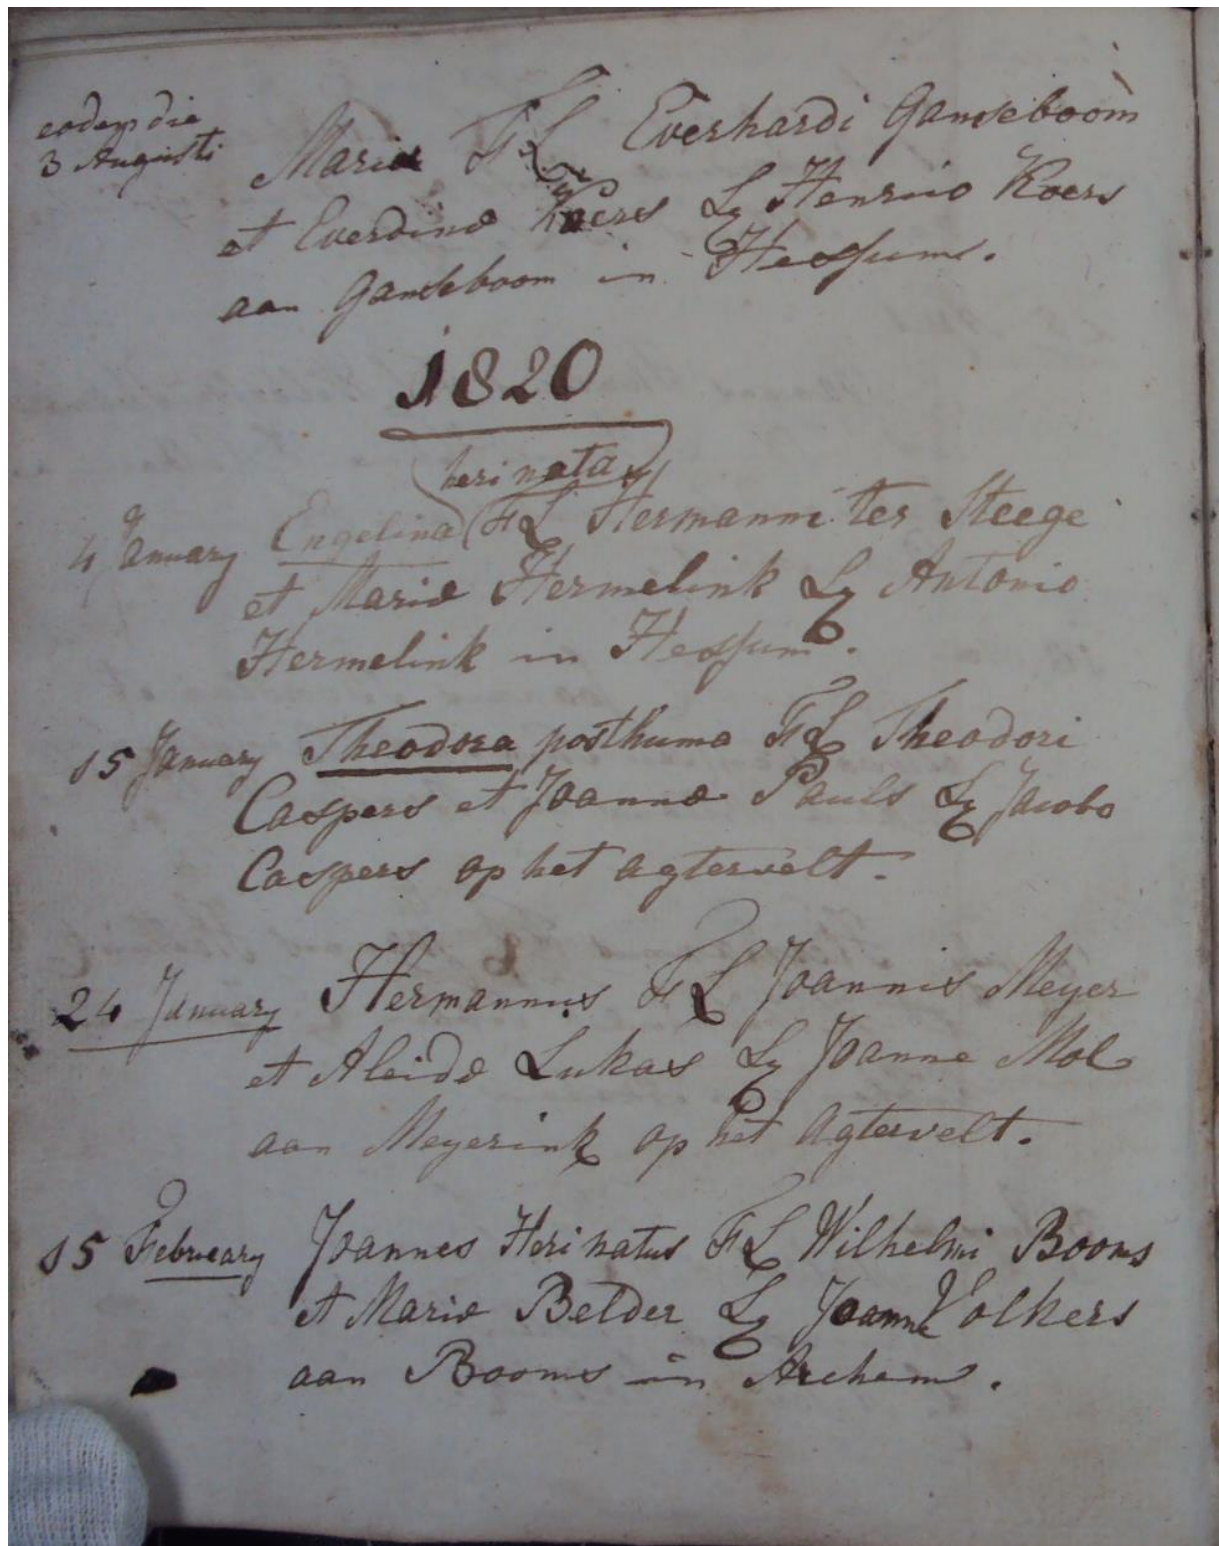 eodem die
3 Augusti
Maria FL Everhardi Ganseboom
et Everdinæ Koers Lg Henrico Koers
aan Ganseboom in Hessum.
1820
heri nata
4 January Engelina FL Hermanni ter Steege
et Mariæ Hermelink Lg Antonio
Hermelink in Hessum.
15 January Theodora posthuma FL Theodori
Caspers et Joannæ Pauls Lg Jacobo
Caspers op het agtervelt.
24 January Hermannus FL Joannis Meyer
et Aleidæ Lukas Lg Joanne Mol
aan Meyerink op het Agtervelt.
15 February Joannes Heri natus FL Wilhelmi Booms
et Mariæ Belder Lg Joanne Volkers
aan Booms in Archem.